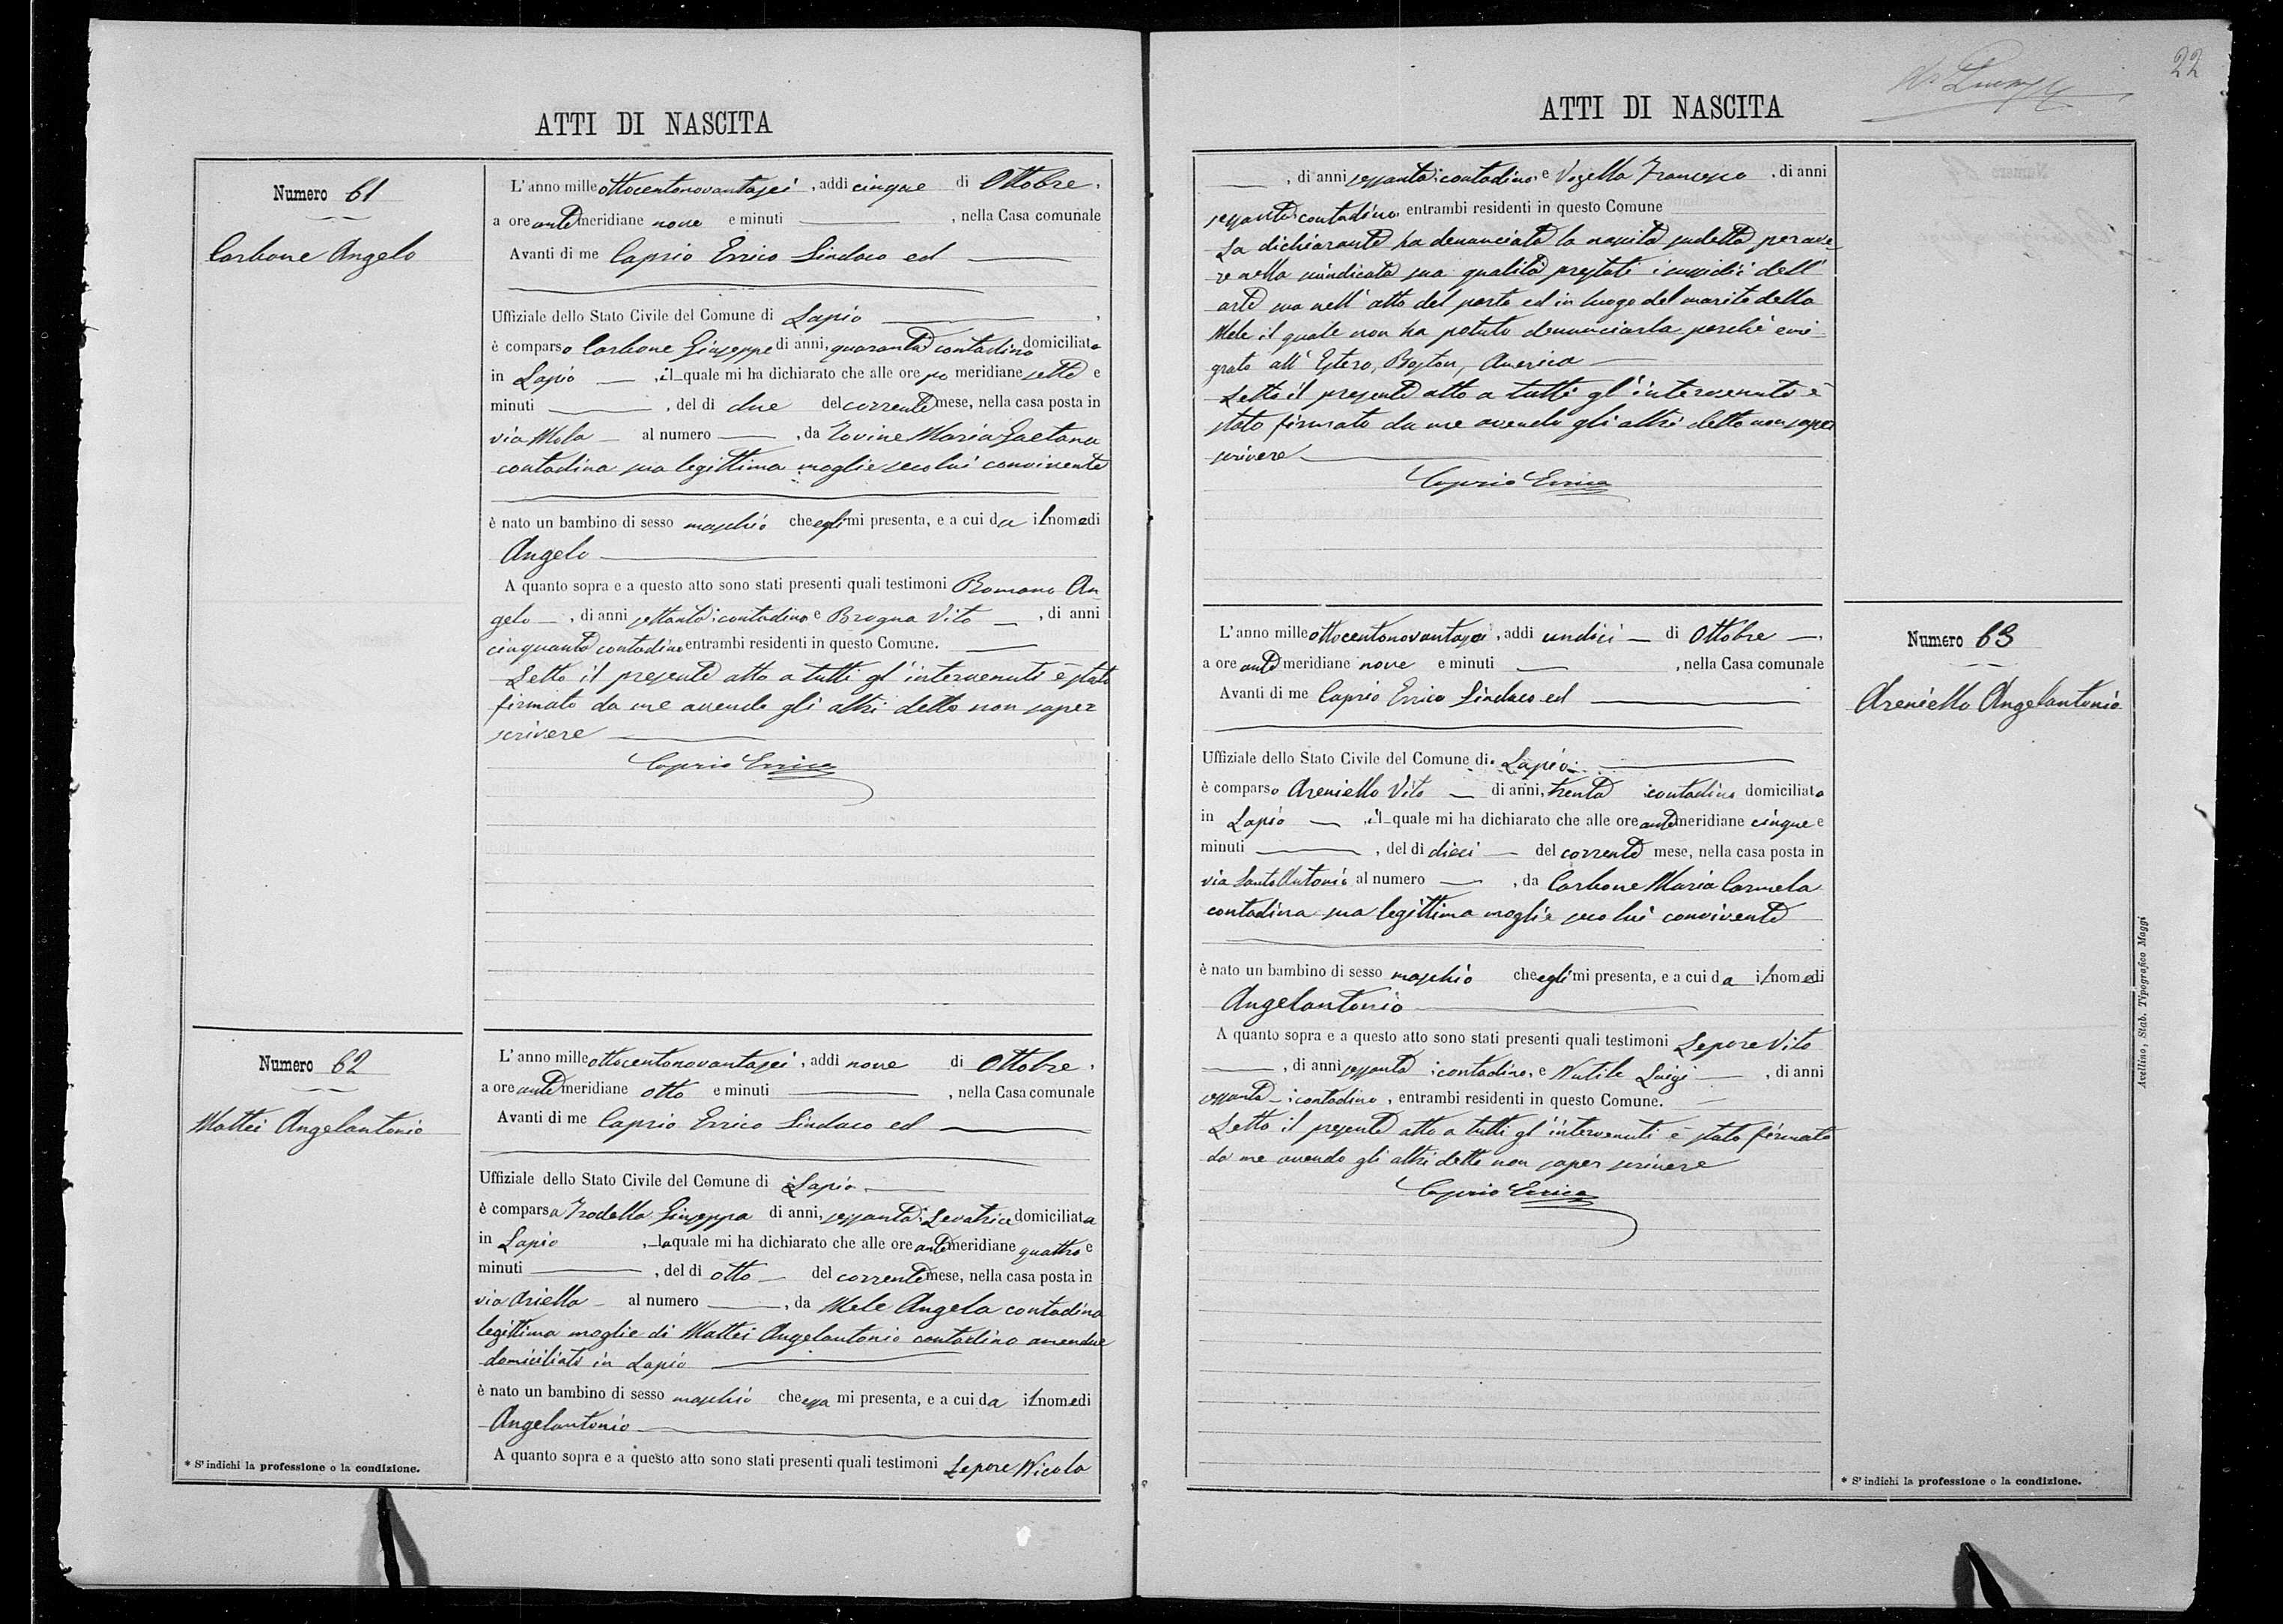 ATTI DI NASCITA
Numero 61
Carbone Angelo
L'anno mille ottocentonovantasei, addì cinque di Ottobre,
a ore antemeridiane nove e minuti , nella Casa comunale
Avanti di me Caprio Errico Sindaco ed
Uffiziale dello Stato Civile del Comune di Lapio ,
è comparso Carbone Giuseppe di anni, quaranta contadino domiciliato
in Lapio , il quale mi ha dichiarato che alle ore po meridiane sette e
minuti , del dì due del corrente mese, nella casa posta in
via Mola al numero , da Iovine Maria Gaetana
contadina sua legittima moglie seco lui convivente
è nato un bambino di sesso maschio che egli mi presenta, e a cui da il nome di
Angelo
A quanto sopra e a questo atto sono stati presenti quali testimoni Romano An-
gelo , di anni settanta contadino e Brogna Vito , di anni
cinquanta contadino entrambi residenti in questo Comune.
Letto il presente atto a tutti gl'intervenuti è stato
firmato da me avendo gli altri detto non saper
scrivere
Caprio Errico
Numero 62
Mattei Angelantonio
L'anno mille ottocentonovantasei, addì nove di Ottobre,
a ore antemeridiane otto e minuti , nella Casa comunale
Avanti di me Caprio Errico Sindaco ed
Uffiziale dello Stato Civile del Comune di Lapio
è comparsa Trodella Giuseppa di anni, sessanta Levatrice domiciliata
in Lapio , la quale mi ha dichiarato che alle ore antemeridiane quattro e
minuti , del dì otto del corrente mese, nella casa posta in
via Ariella al numero , da Mele Angela contadina
legittima moglie di Mattei Angelantonio contadino amendue
domiciliati in Lapio
è nato un bambino di sesso maschio che essa mi presenta, e a cui da il nome di
Angelantonio
A quanto sopra e a questo atto sono stati presenti quali testimoni Lepore Nicola
* S'indichi la professione o la condizione.
22
ATTI DI NASCITA
, di anni sessanta contadino e Vozella Francesco , di anni
sessanta contadino entrambi residenti in questo Comune
La dichiarante ha denunciata la nascita sudetta per ave-
re nella suindicata sua qualità prestati i sussidii dell'
arte sua nell'atto del parto ed in luogo del marito della
Mele il quale non ha potuto denunciarla perchè emi-
grato all'Estero, Boston, America
Letto il presente atto a tutti gl'intervenuti è
stato firmato da me avendo gli altri detto non saper
scrivere
Caprio Errico
Numero 63
Areniello Angelantonio
L'anno mille ottocentonovantasei, addì undici di Ottobre ,
a ore antemeridiane nove e minuti , nella Casa comunale
Avanti di me Caprio Errico Sindaco ed
Uffiziale dello Stato Civile del Comune di Lapio
è comparso Areniello Vito di anni, trenta contadino domiciliato
in Lapio , il quale mi ha dichiarato che alle ore antemeridiane cinque e
minuti , del dì dieci del corrente mese, nella casa posta in
via Santo Antonio al numero , da Carbone Maria Carmela
contadina sua legittima moglie seco lui convivente
è nato un bambino di sesso maschio che egli mi presenta, e a cui da il nome di
Angelantonio
A quanto sopra e a questo atto sono stati presenti quali testimoni Lepore Vito
, di anni sessanta contadino, e Nutile Luigi , di anni
sessanta contadino, entrambi residenti in questo Comune.
Letto il presente atto a tutti gl'intervenuti è stato firmato
da me avendo gli altri detto non saper scrivere
Caprio Errico
* S'indichi la professione o la condizione.
Avellino, Stab. Tipografico Maggi